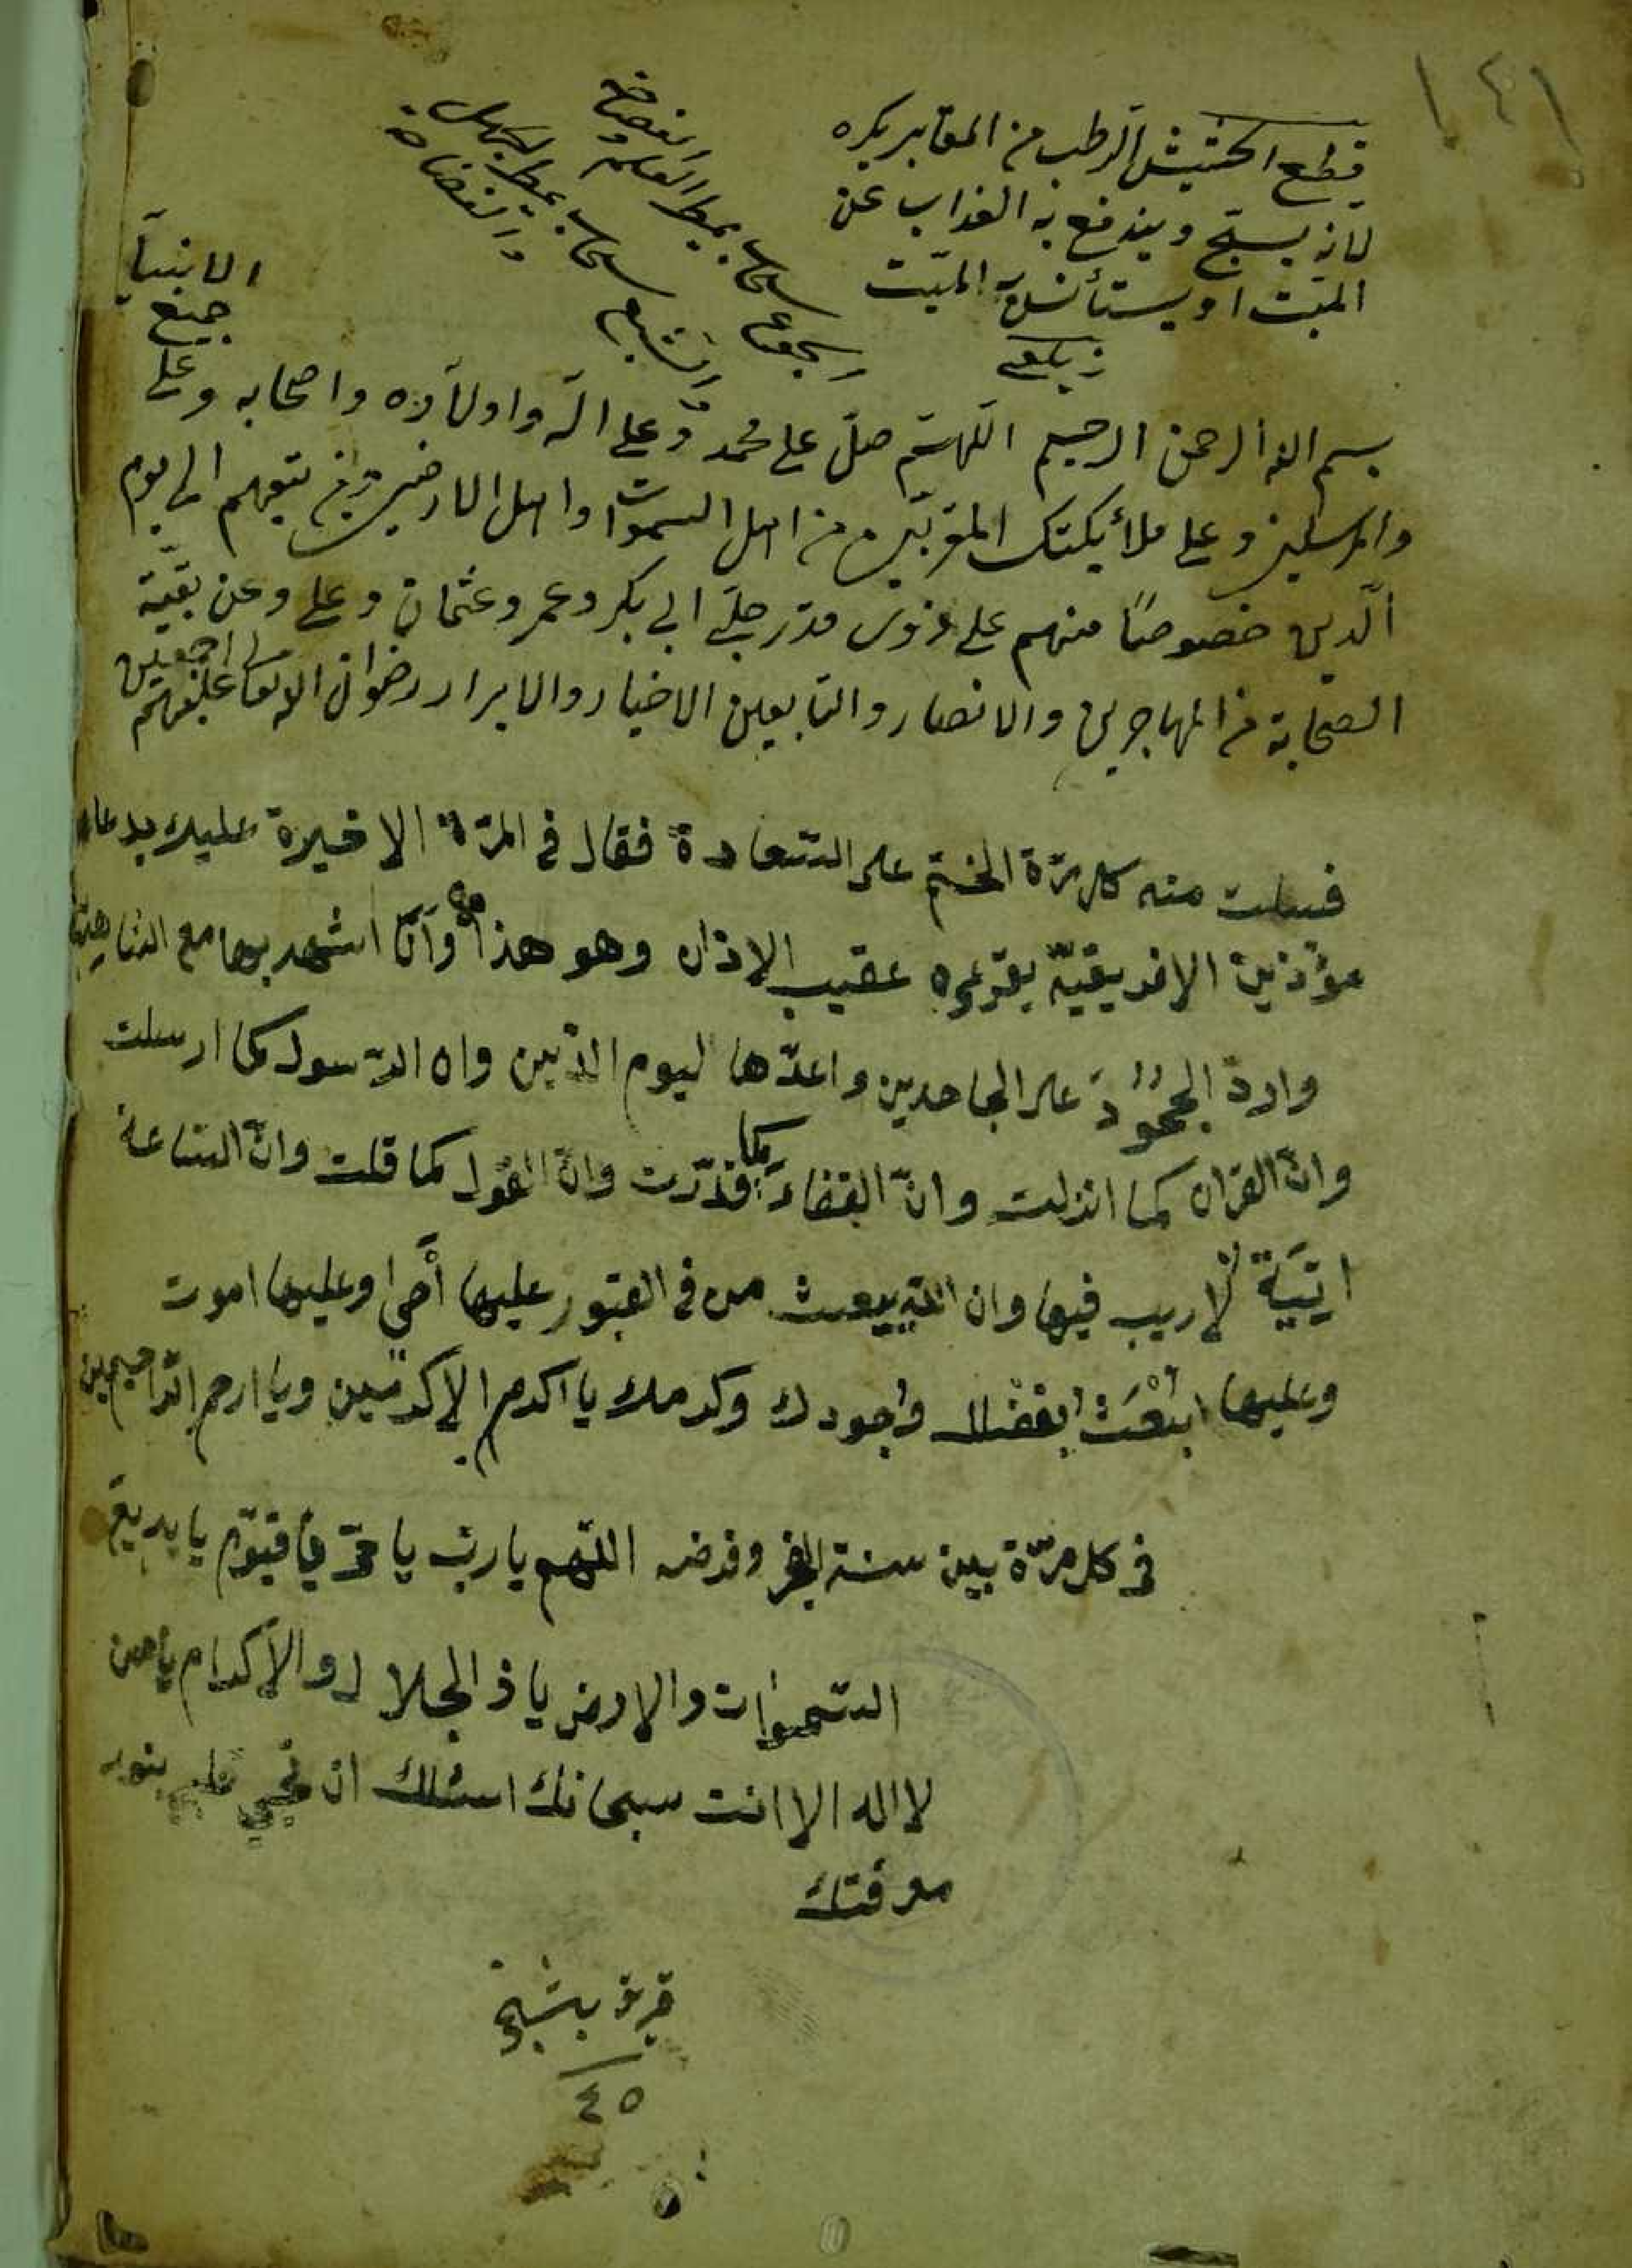 ١٤١
قطع الحشيش الرطب من المقابر يكره
لانه يسبح ويندفع به العذاب عن
الميت او يستأنس به الميت
زيلعى
الجوع سحاب يمطر العلم والفضاحة
والشبع سحاب يمطر الجهل
والفضاحة
بسم الله الرحمن الرحيم اللهم صل على محمد وعلى اله واولاده واصحابه وعلى جميع الانبيآ
والمرسلين وعلى ملائكتك المقربين من اهل السموات واهل الارضين ومن تبعهم الى يوم
الدين خصوصًا منهم على ذوى قدر جلى ابى بكر وعمر وعثمان وعلى وعن بقية
الصحابة من المهاجرين والانصار والتابعين الاخيار والابرار رضوان الله تعالى عليهم اجمعين
فسئلت منه كل مرة الختم على السعادة فقال فى المرة الاخيرة عليك بدعاء
مؤذنين الافريقية يقرؤه عقيب الاذان وهو هذا وانا اشهد بها مع الشاهدين
وارد الجحود على الجاحدين واعدها ليوم الدين وان الرسول كما ارسلت
وان القران كما انزلت وان القضاء كما قدرت وان القول كما قلت وان الساعة
اتية لاريب فيها وان الله يبعث من فى القبور عليها أحيى وعليها اموت
وعليها ابعث بفضلك وجودك وكرمك يا اكرم الاكرمين ويا ارحم الراحمين
فى كل مرة بين سنة الفجر وفرضه اللهم يا رب يا حى يا قيوم يا بديع
السموات والارض يا ذ الجلال والاكرام يا من
لا اله الا انت سبحانك اسئلك ان تحيى قلبى بنور
معرفتك
٤٥